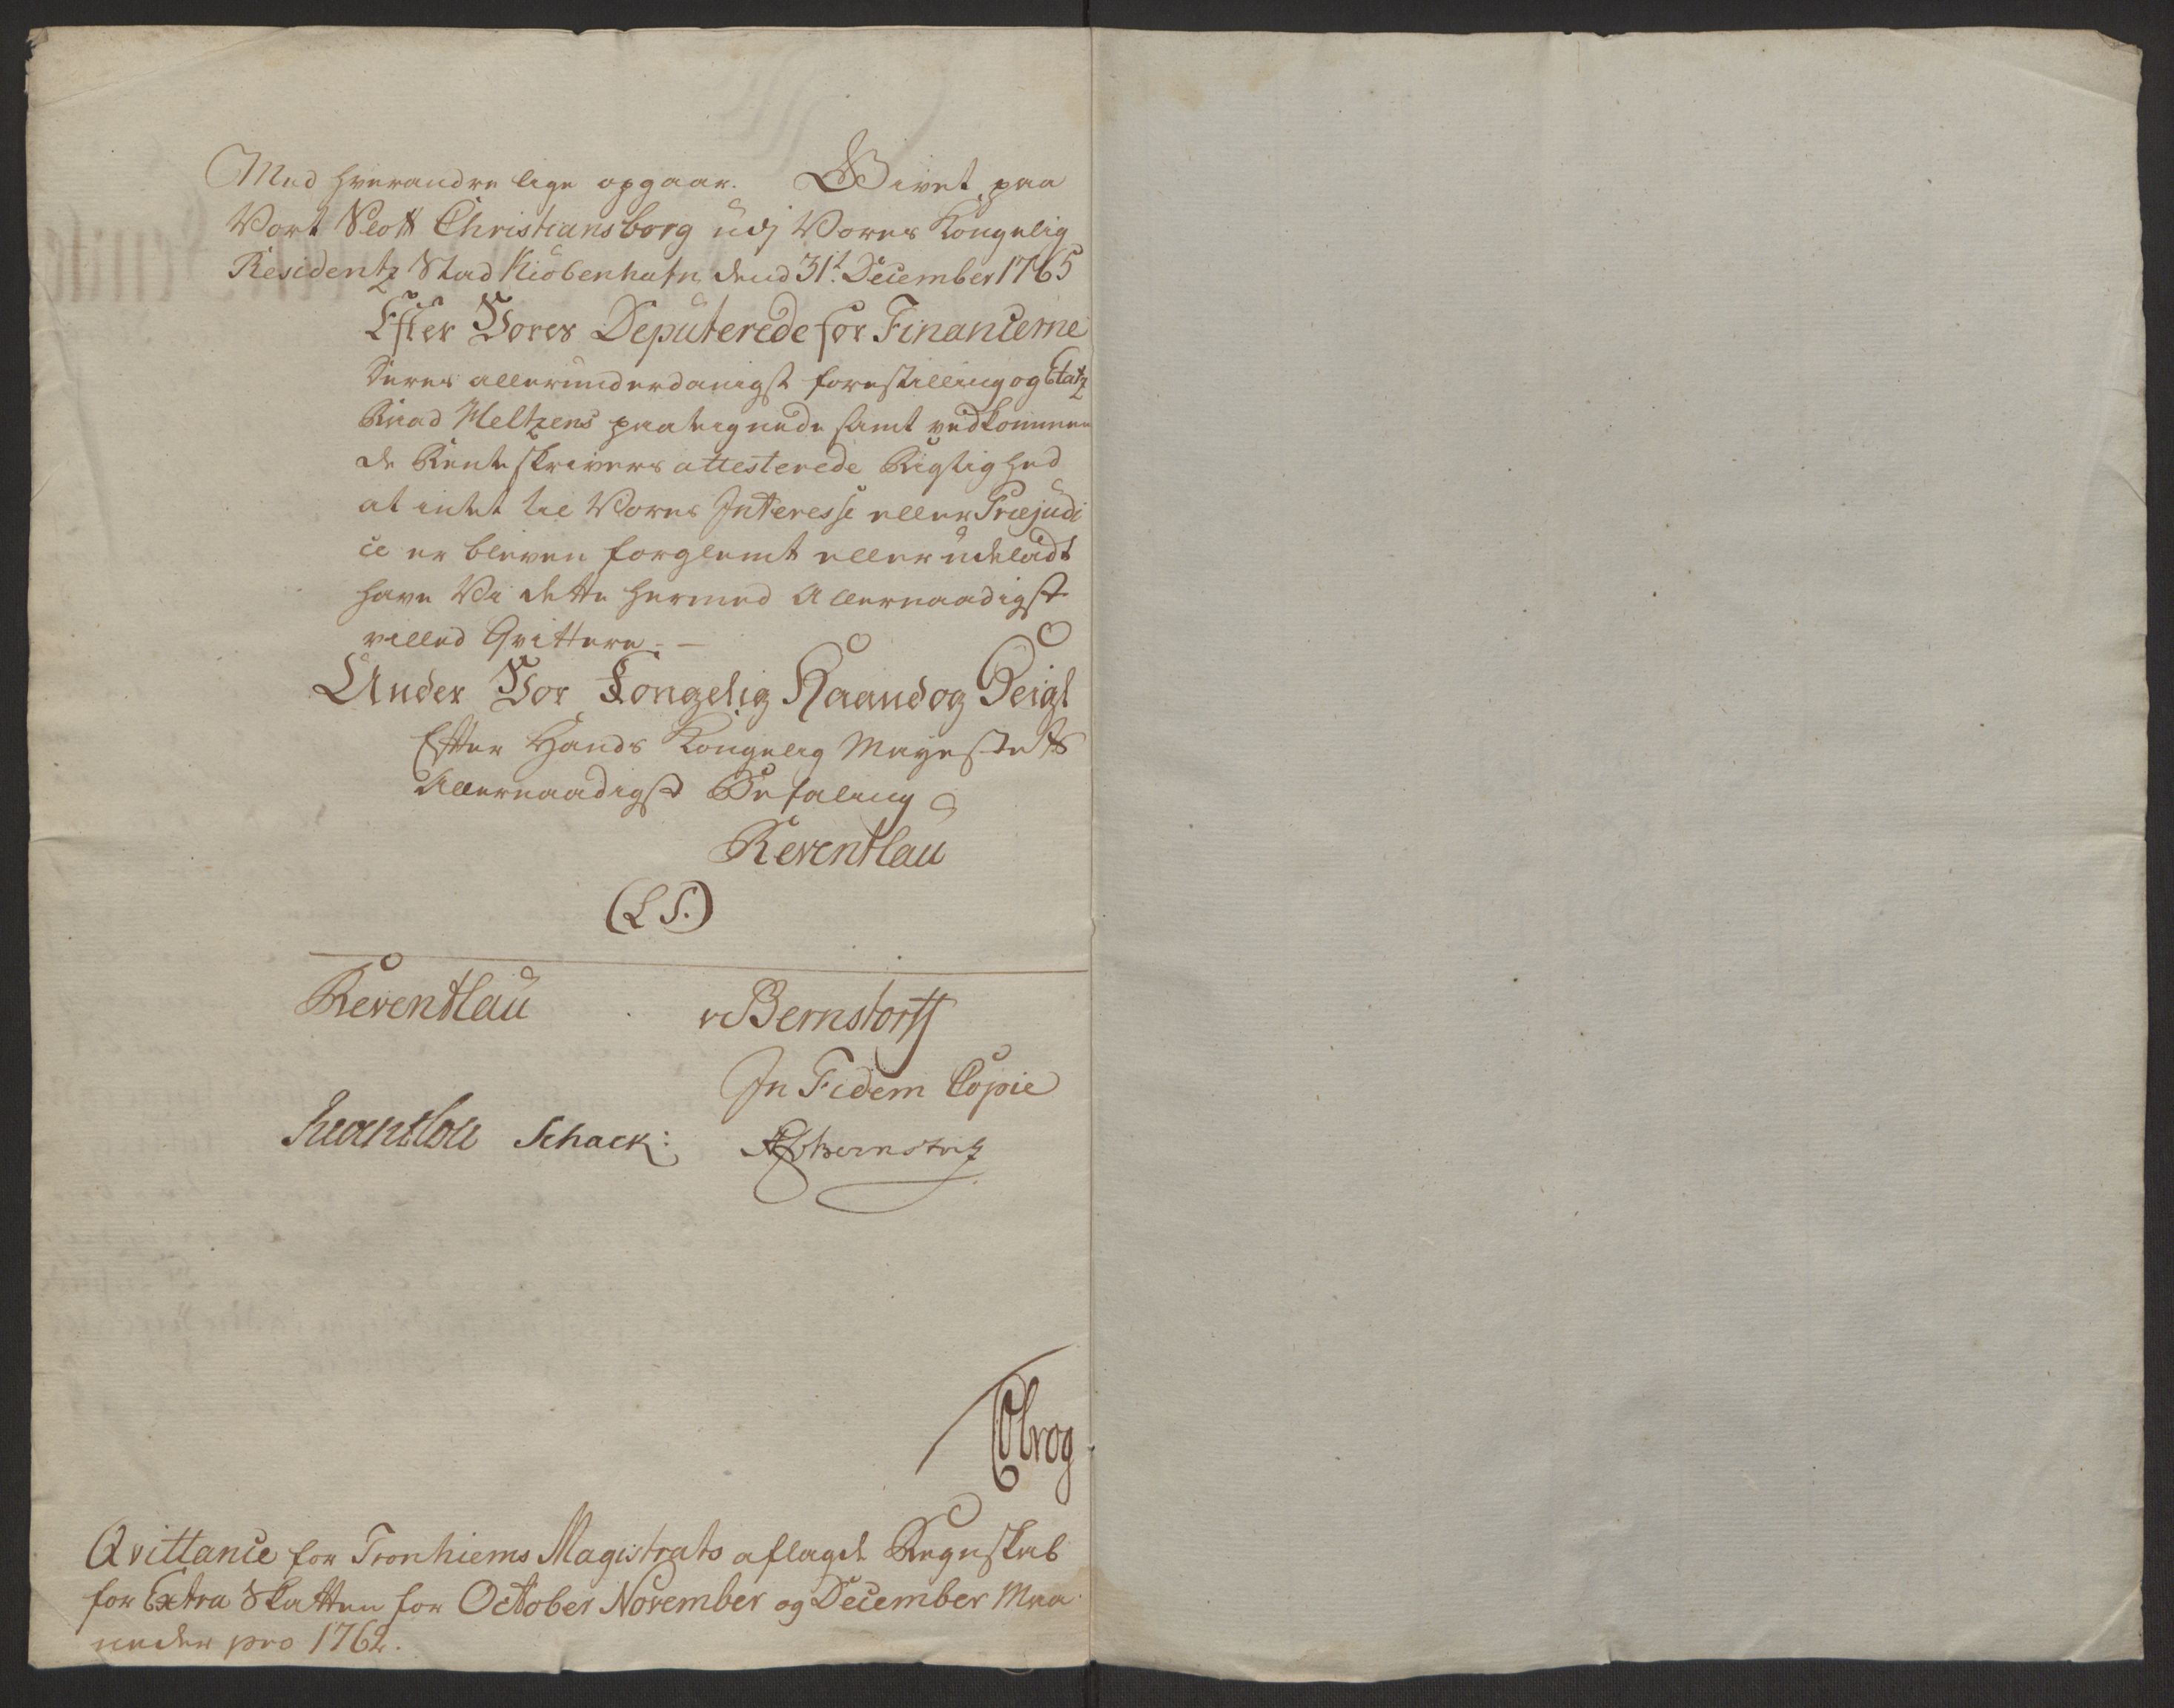 Med hverandre lige opgaar. Givet paa
Vort Slott Christiansborg udj Vores Kongelig
Residentz Stad Kiöbenhafn dend 31t. December 1765
Efter Vores Deputerede for Financerne
deres allerunderdanigst forestilling og Etatz
Raad Meltzens paategnede samt vedkommen
de Renteskrivers attesterede Rigtighed
at intet til Vores Interesse eller Præjudi
ce er bleven forglemt eller udeladt
have Vi dette hermed Allernaadigst
villed Qvittere. —
Under Vor Kongelig Haand og Seigl
Efter Hands Kongelig Mayestets
Allernaadigst Befaling
Reventlau
(L S.)
Reventlau v Bernstorff
In Fidem Copie
Reventlou Schack:
Cbrog
Qvittance for Tronhiems Magistrats aflagde Regnskab
for Extra Skatten for October November og December Maa
neder pro 1762.